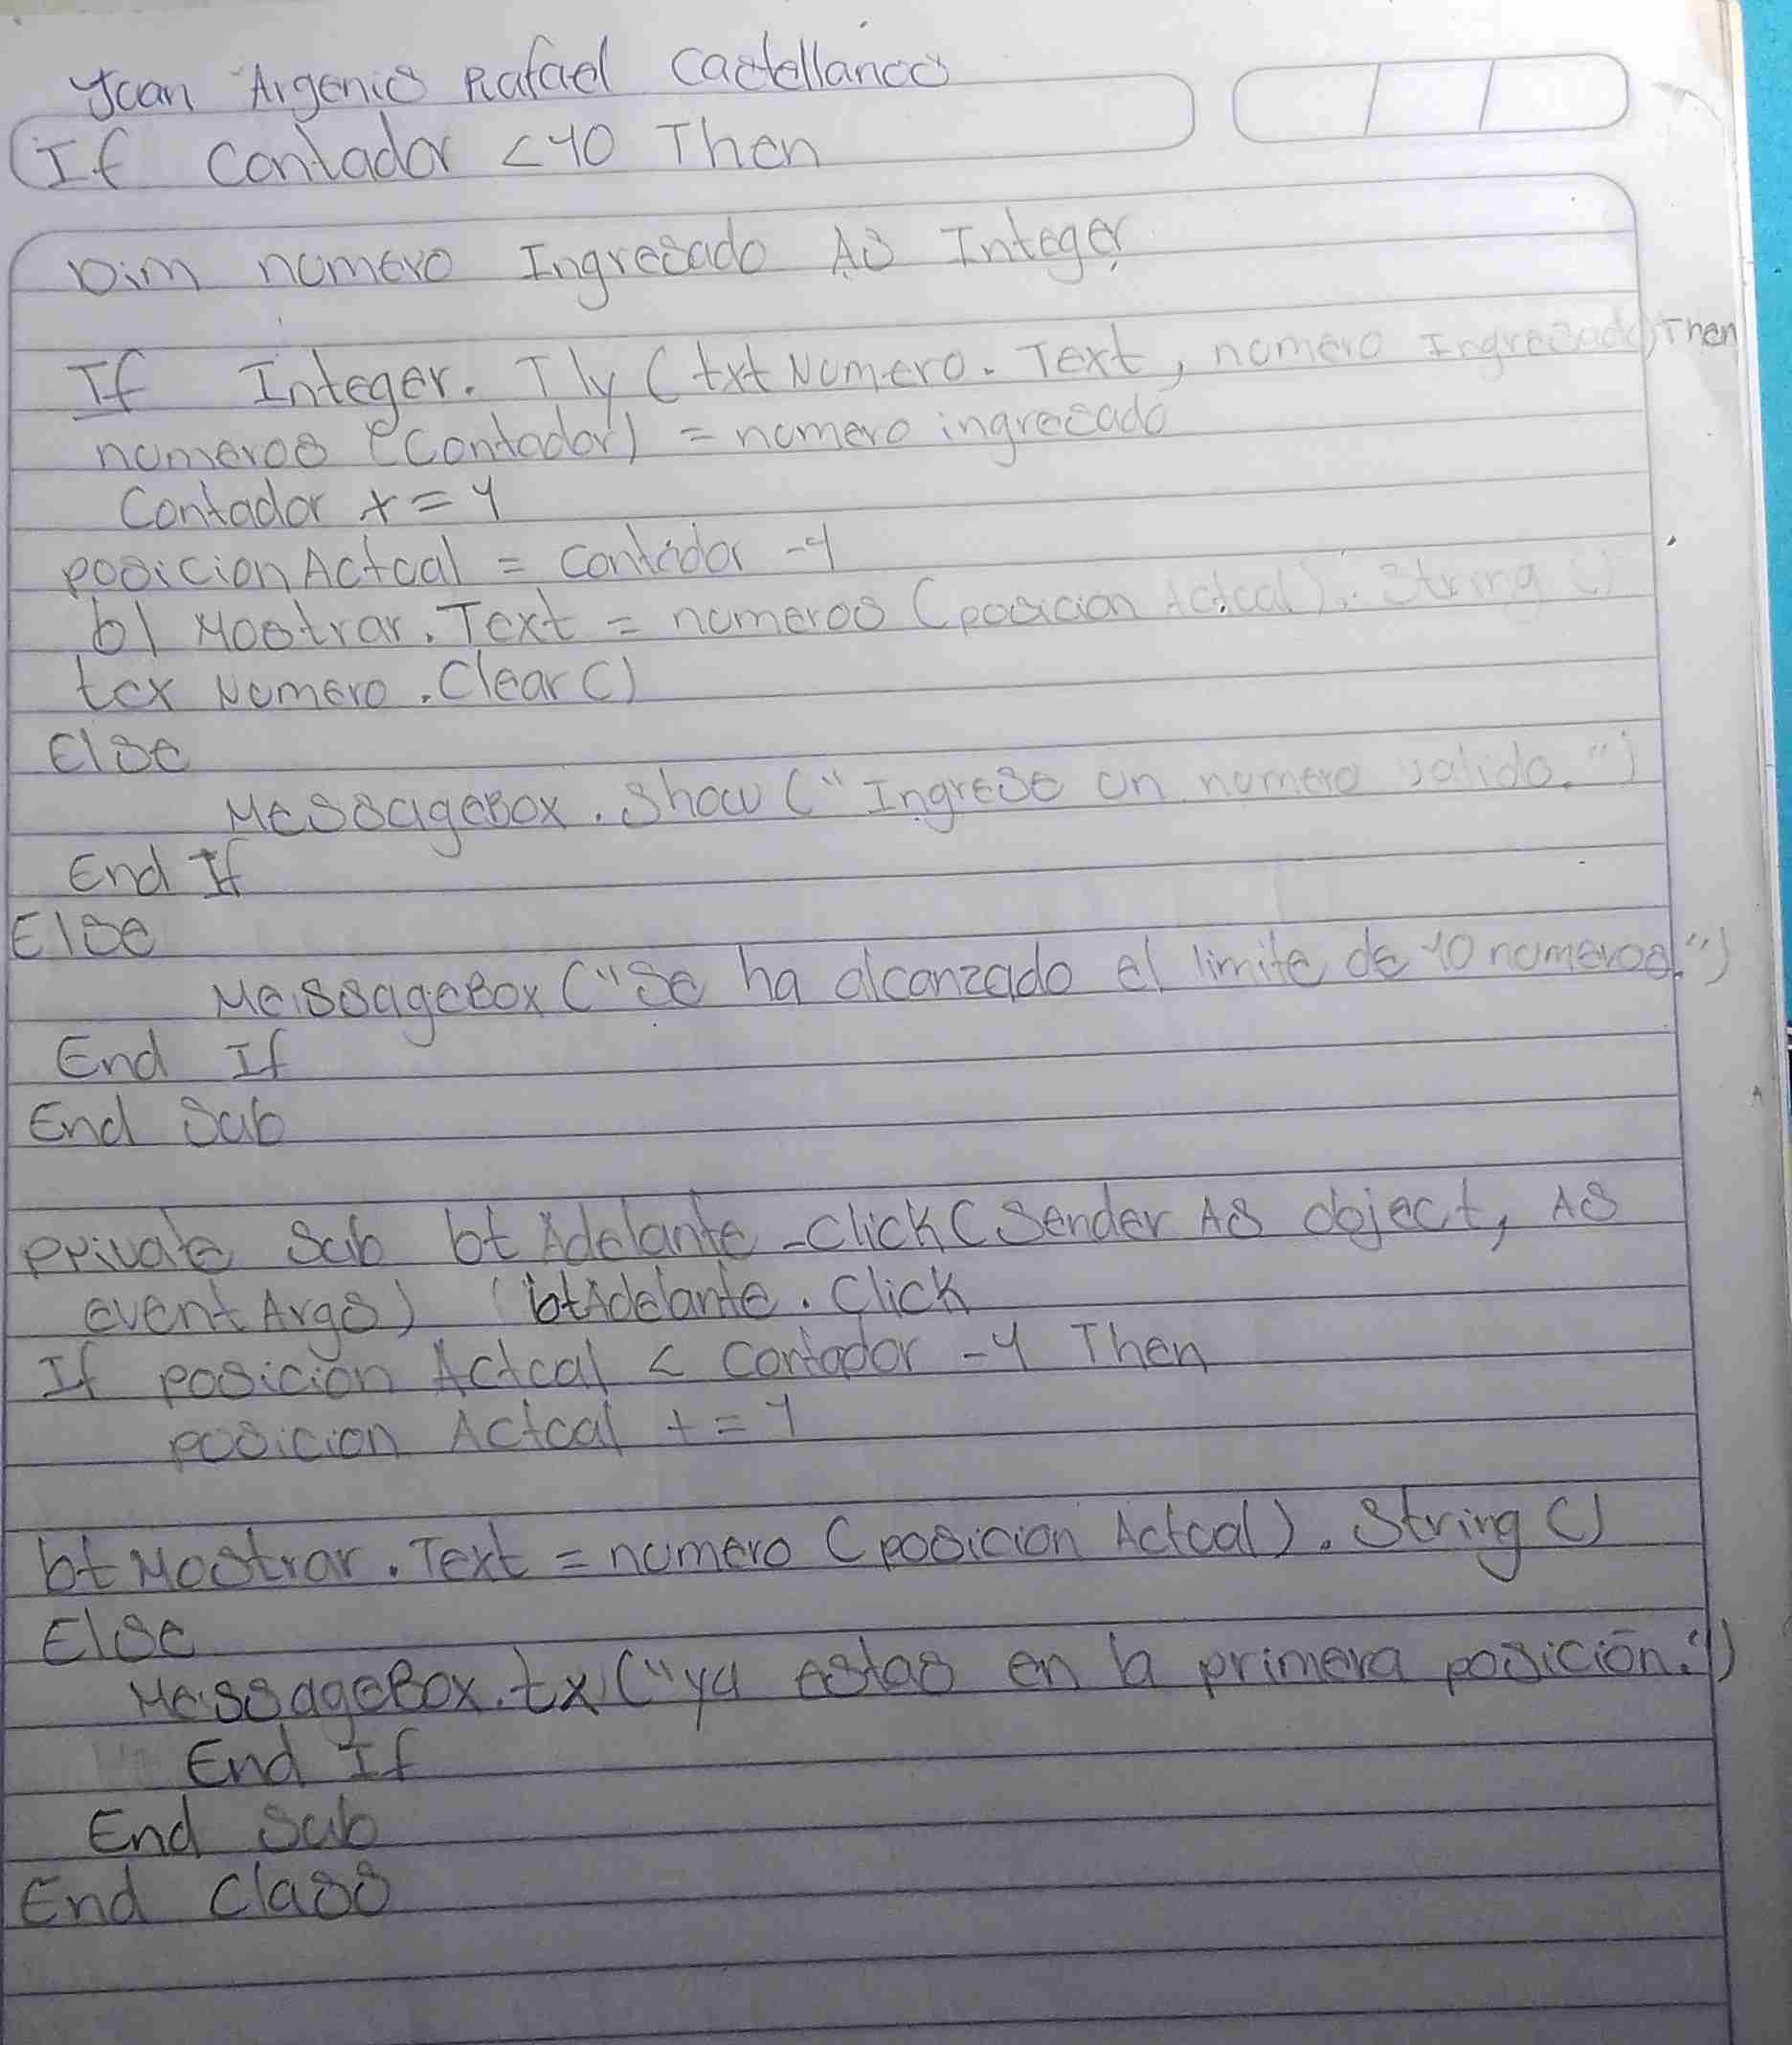 Jean Argenis Rafael Castellanos
If Contador <10 Then
Dim numero Ingresado As Integer
If Integer. Try (txt Numero. Text, numero Ingresado) Then
numeros (Contador) = numero ingresado
Contador += 1
posicion Actual = contador -1
bl Mostrar. Text = numeros (posicion Actual). String ()
tex Numero. Clear ()
Else
MessageBox. Show ("Ingrese un numero valido.")
End If
Else
MessageBox ("Se ha alcanzado el limite de 10 numeros.")
End If
End Sub
Private Sub bt Adelante -Click (Sender As object, As
event Args) (btAdelante. Click
If posicion Actual < Contador -1 Then
posicion Actual += 1
bt Mostrar. Text = numero (posicion Actual). String ()
Else
MessageBox. tx ("ya estas en la primera posición.")
End If
End Sub
End Class